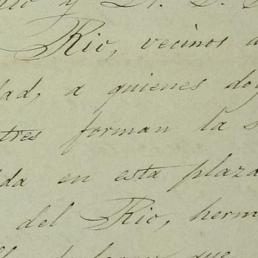 y D. D.
Rio, vecinos
dad, a quienes doy
tres forman la
da en esta plaza
del Rio, herm
que